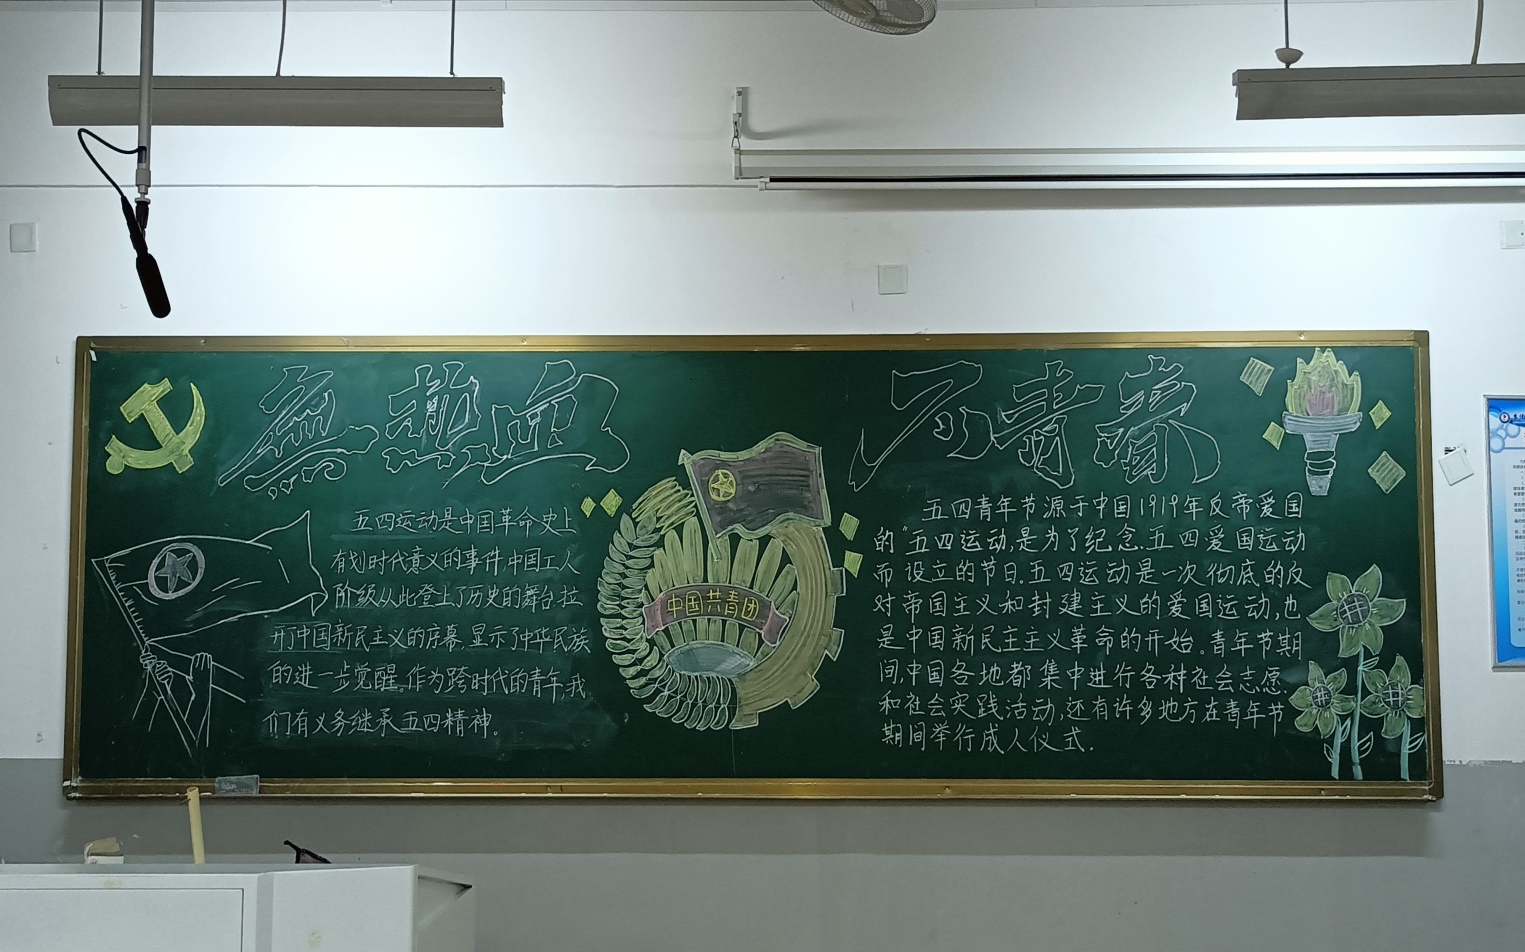 無热血
不青春
五四运动是中国革命史上
有划时代意义的事件,中国工人
阶级从此登上了历史的舞台,拉
开了中国新民主义的序幕,显示了中华民族
的进一步觉醒。作为跨时代的青年,我
们有义务继承五四精神。
中国共青团
五四青年节源于中国1919年反帝爱国
的"五四运动,是为了纪念五四爱国运动
而设立的节日.五四运动是一次彻底的反
对帝国主义和封建主义的爱国运动,也
是中国新民主主义革命的开始。青年节期
间,中国各地都集中进行各种社会志愿
和社会实践活动,还有许多地方在青年节
期间举行成人仪式.